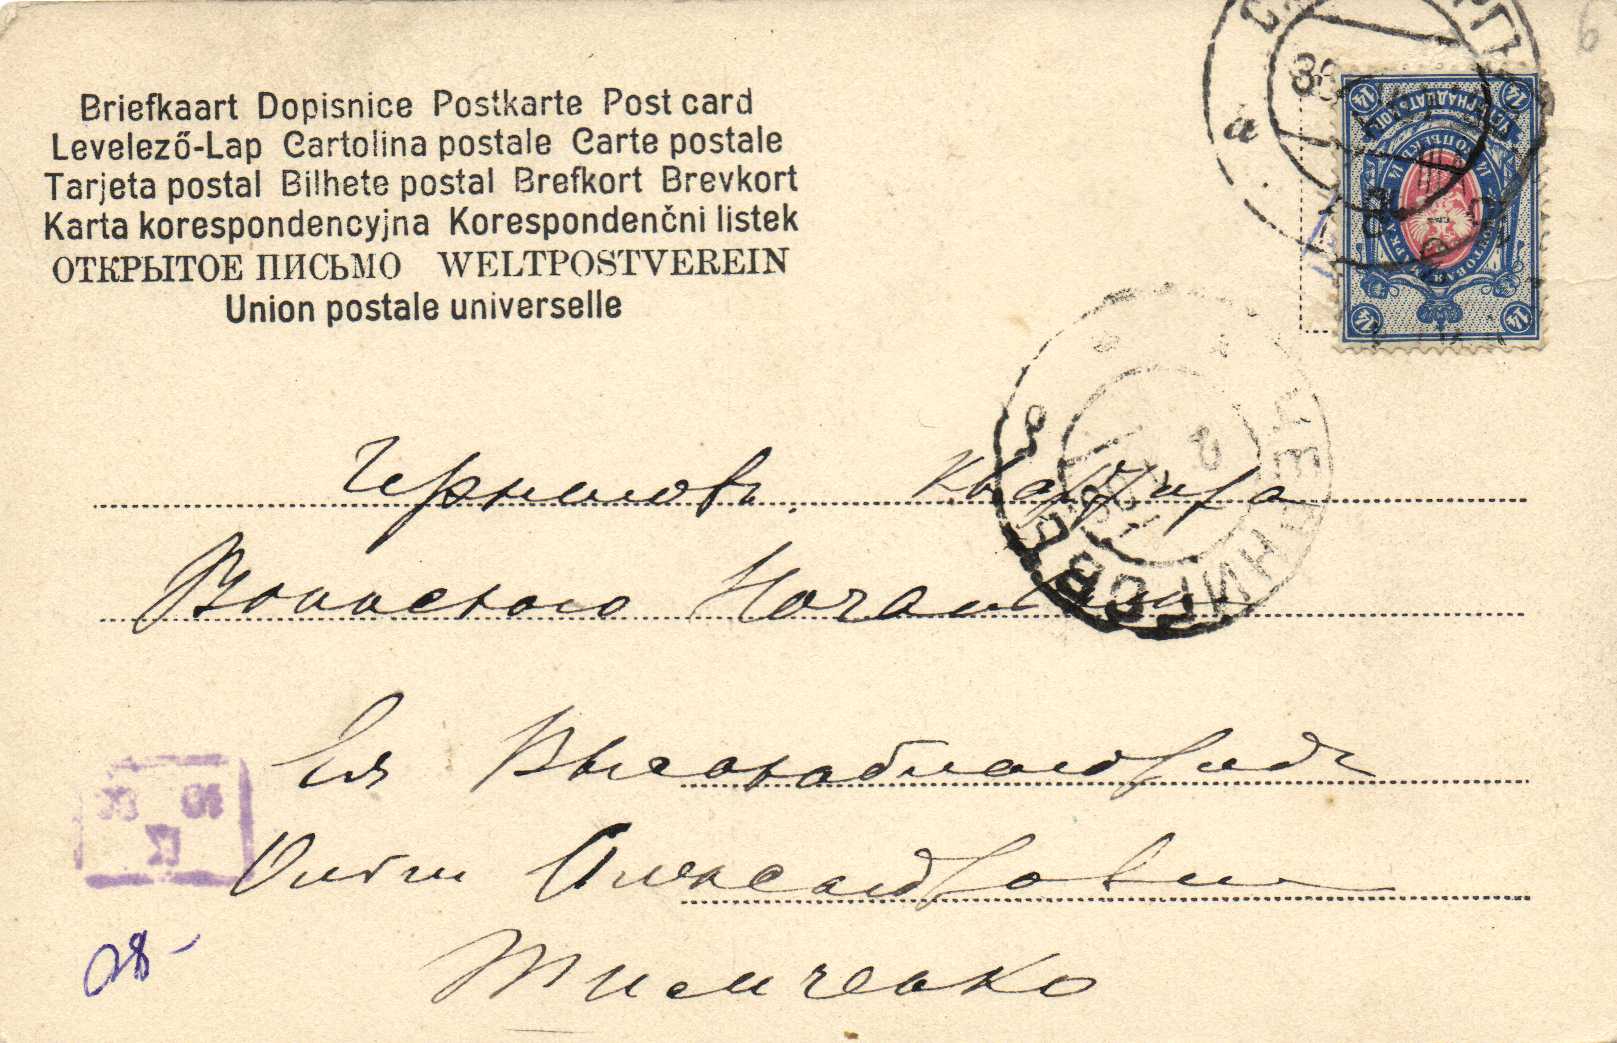 Briefkaart Dopisnice Postkarte Post card
Levelező-Lap Cartolina postale Carte postale
Tarjeta postal Bilhete postal Brefkort Brevkort
Karta korespondencyjna Korespondenčni listek
ОТКРЫТОЕ ПИСЬМО WELTPOSTVEREIN
Union postale universelle
14 14
14 14
ПОЧТОВАЯ МАРКА
ЧЕРНИГОВ
Черниговъ. Квартира
Воинскаго Начальника
Ея Высокоблагородію
Ольги Александровны
Тимченко
28-
6